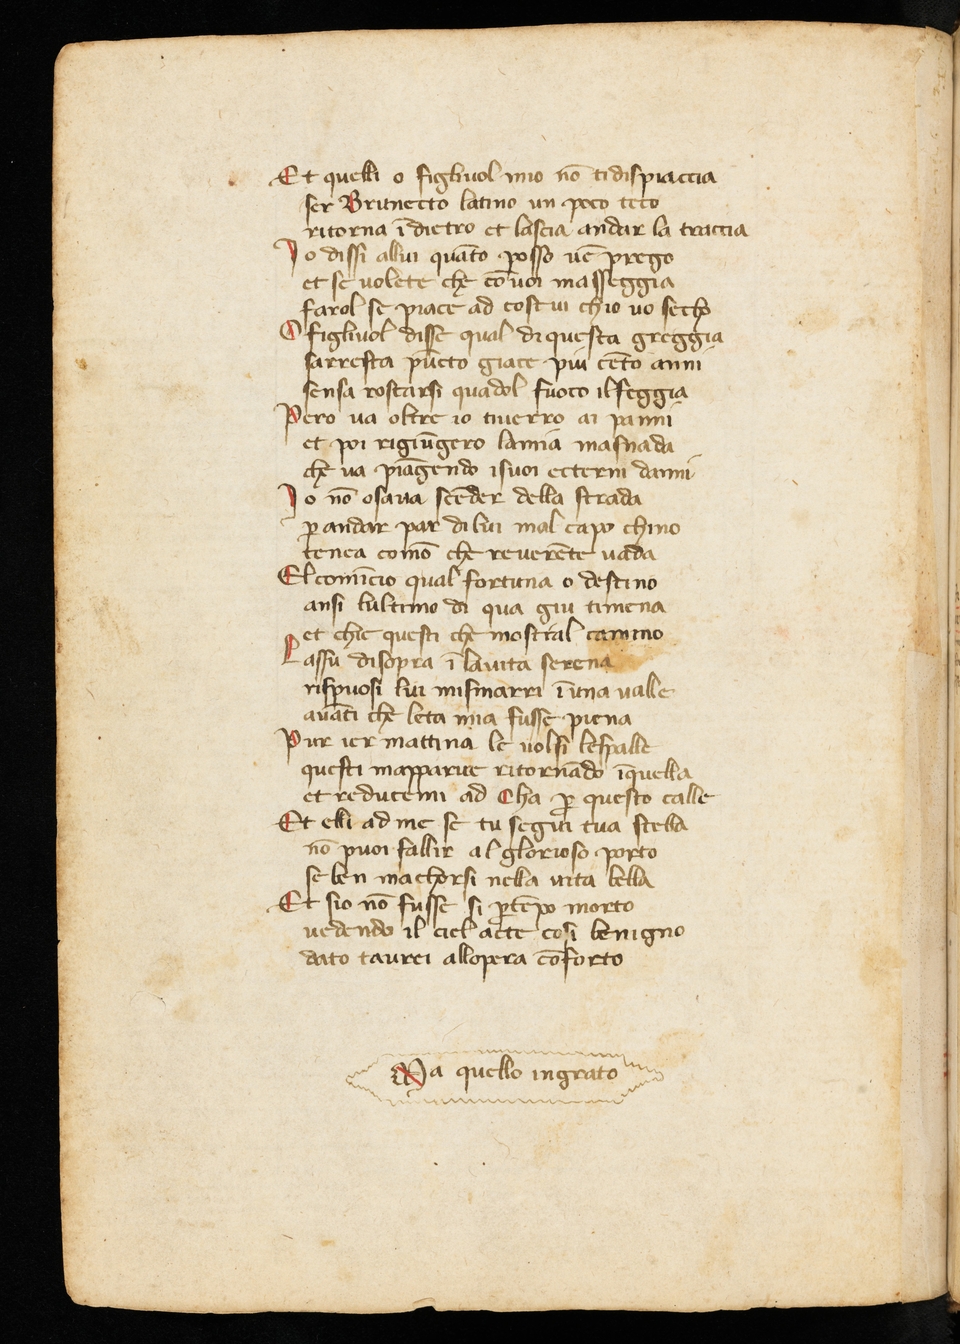 Et quelli o figliuol mio nō tidispiaccia
ser Brunetto latino un poco teco
ritorna ī dietro et lascia andar la traccia
Io dissi allui quāto posso uē prego
et se uolete che cō uoi masseggia
farol se piace ad costui chio uo secho
O figliuol disse qual di questa greggia
sarresta pūcto giace piu cēto anni
sensa rostarsi quādol fuoco ilfeggia
Pero ua oltre io tiuerro ai panni
et poi rigiūgero lamia masnada
che ua piāgendo isuoi ecterni danni
Io nō osaua scēder della strada
p̱ andar par di lui mal capo chino
tenea comō che reuerēte uada
El comīcio qual fortuna o destino
ansi lultimo di qua giu timena
et chie questi che mostral camino
Lassu disopra ī lauita serena
rispuosi lui mismarri ī una ualle
auāti che leta mia fusse piena
Pur ier mattina le uolsi lespalle
questi mapparue ritornādo īquella
et reducemi ad Cha p̱ questo calle
Et elli ad me se tu segui tua stella
nō puoi fallir al glorioso porto
se ben machorsi nella uita bella
Et sio nō fusse si p̱ tēpo morto
uedendo il ciel acte cosi benigno
dato taurei allopera cōforto
Ma quello ingrato